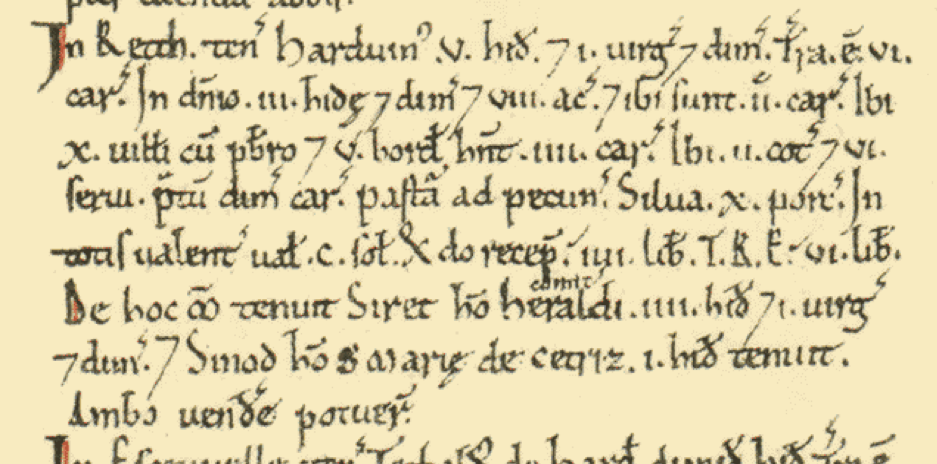 In Retth. ten᷎ Harduin⁹ .V. hid᷎. ⁊ i. uirg᷎ ⁊ dim᷎. Tr̄a. ē. vi.
car᷎. In dn̄io. iii. hidę ⁊ dim᷎ ⁊ viii. ac᷎. ⁊ ibi sunt. ii. car᷎. Ibi
x. uilɫi cū p̄bro ⁊ v. bord᷎ hn̄t. iiii. car᷎. Ibi. ii. cot᷎ ⁊ vi.
serui. p̄tū dim᷎ car᷎. pastā ad pecun᷎. Silua. x. porc᷎. In
totis ualent᷎ uaɫ .c. soɫ. & do recep̄. iiii. lib᷎. T.R.E. vi. lib᷎.
De hoc m̄ tenuit Siret hō heraldi comit᷎ . iiii. hid᷎ ⁊ i. uirg᷎
⁊ dim᷎. ⁊ Sinod hō S Marię de cetriz. i. hid᷎ tenuit.
Ambo uendē potuer᷎